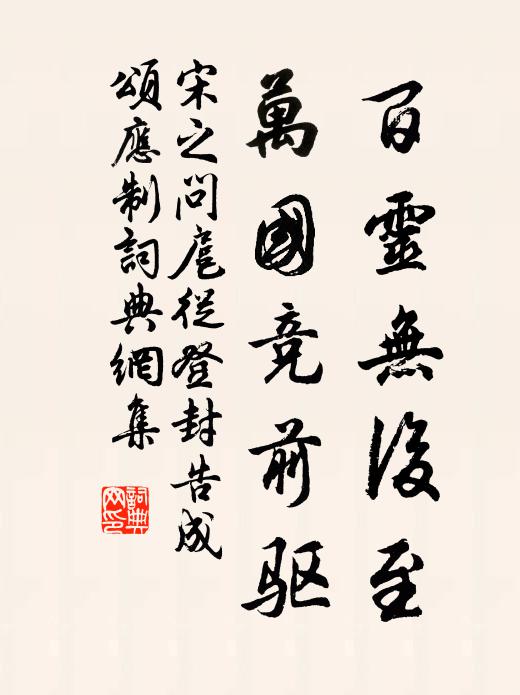 百靈無後至
萬國竞前驱
宋之问扈從登封告成
頌應制詞典網集
詞典
网印